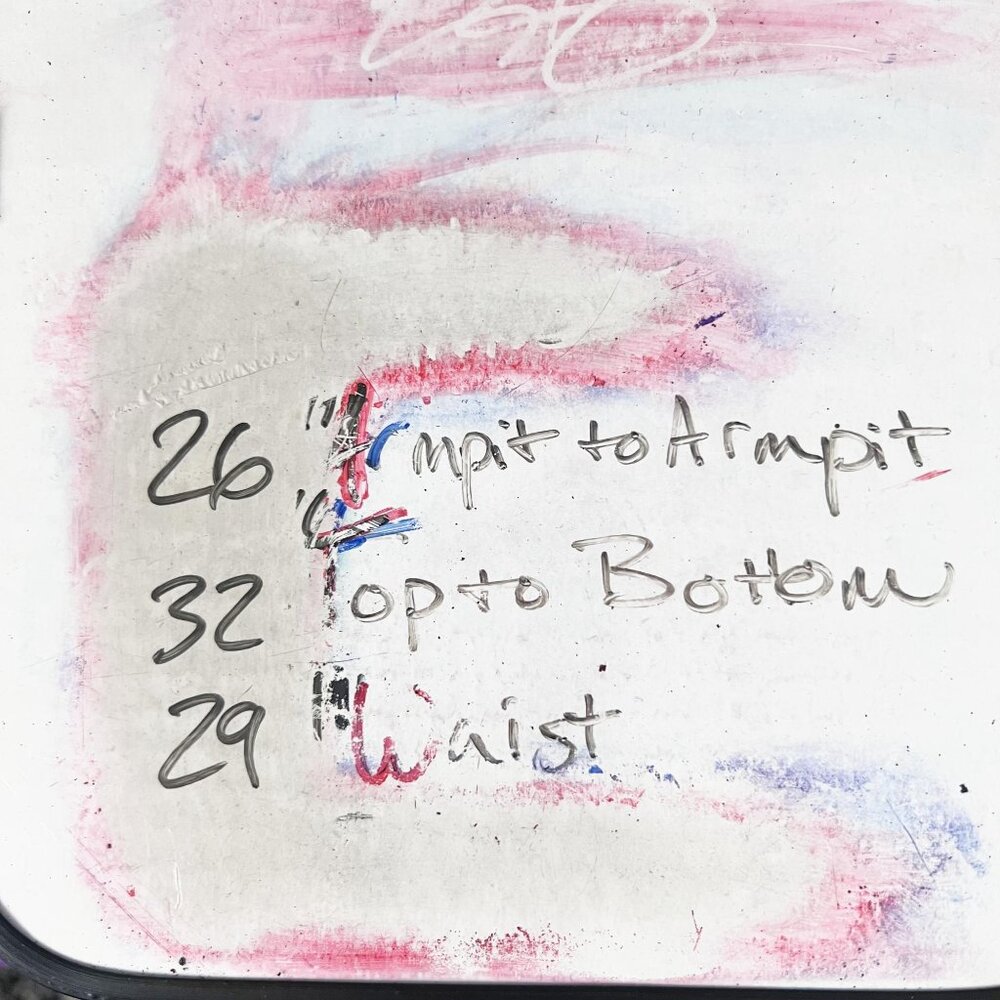 26 "Armpit to Armpit
32 "Top to Bottom
29 "Waist